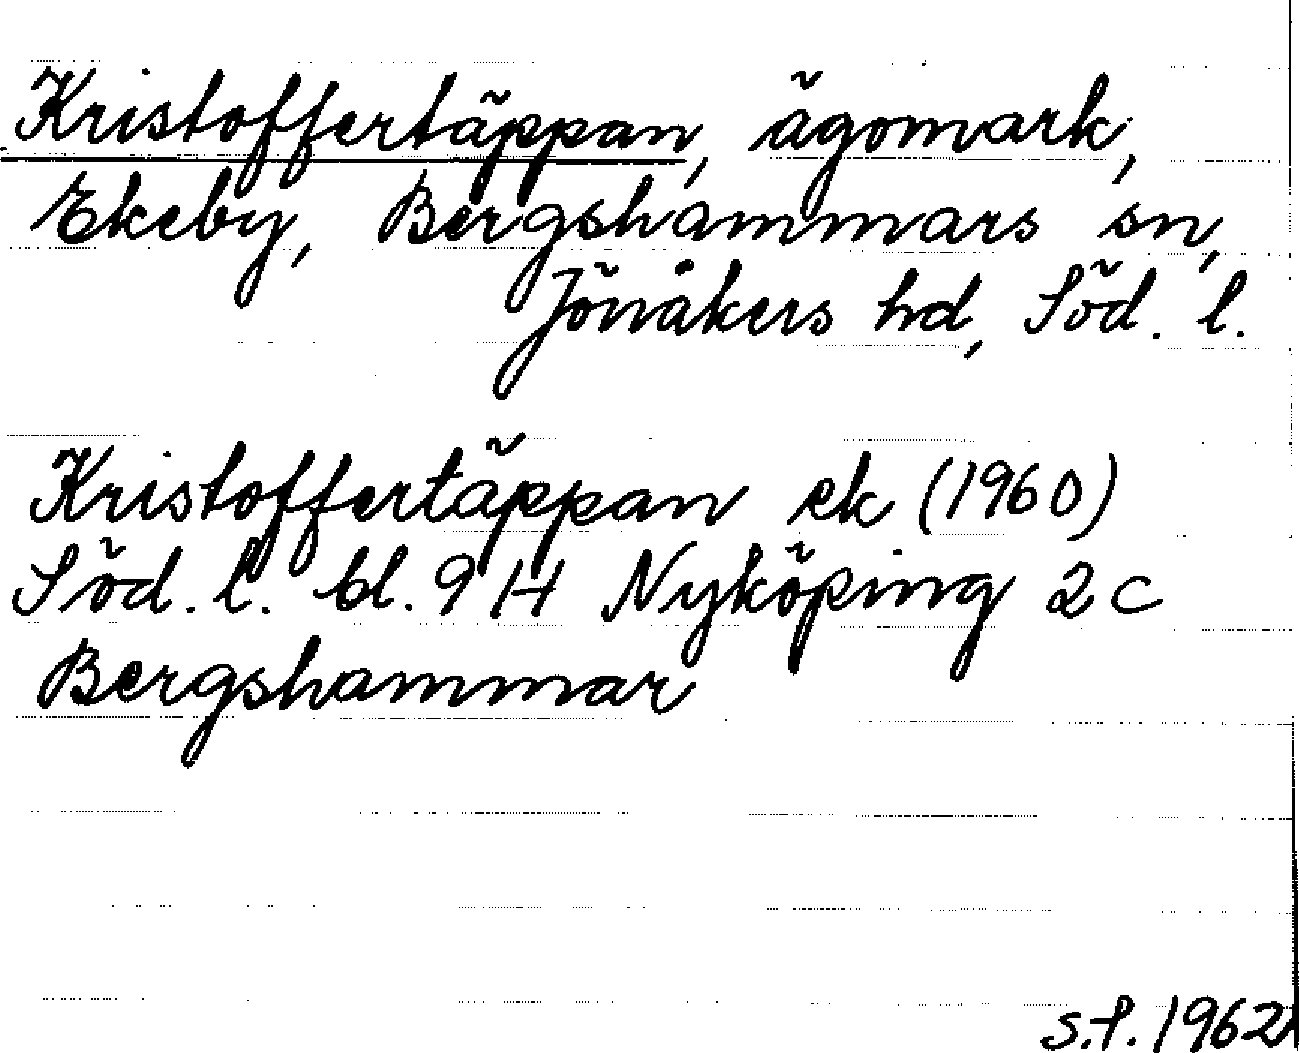 Kristoffertäppan, ägomark,
Ekeby, Bergshammars sn,
Jönåkers hd, Söd. l.
Kristoffertäppan ek (1960)
Söd. l. bl. 9 H Nyköping 2 c
Bergshammar
S.F. 1962